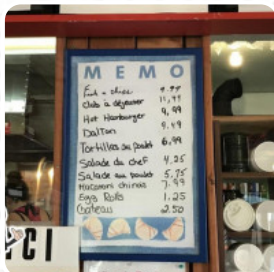 MEMO
Fish n chips 9.95
Club à déjeuner 11,95
Hot Hamburger 9,99
Dalton 9.49
Tortillas au poulet 6,99
Salade du chef 4.25
Salade au poulet 5.75
Macaroni chinois 7.99
Egg Rolls 1.25
Chateau 2.50
CI